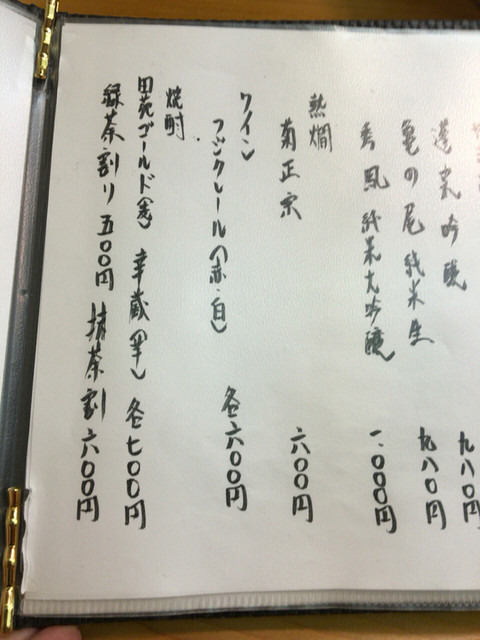 九八〇円
亀の尾 純米生 九八〇円
秀鳳 純米大吟醸 一、〇〇〇円
熱燗
菊正宗 六〇〇円
ワイン
フジクレール(赤・白) 各六〇〇円
焼酎
田苑ゴールド(麦) 幸蔵(芋) 各七〇〇円
緑茶割り 五〇〇円 抹茶割 六〇〇円